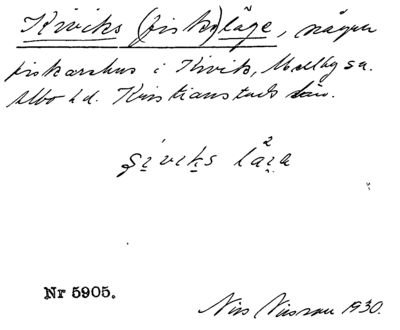 Kiviks (fisk)läge, några
fiskarehus i Kivik, Mellby sn.
Albo hd. Kristianstads län.
Nr 5905.
Nils Nilsson 1930.